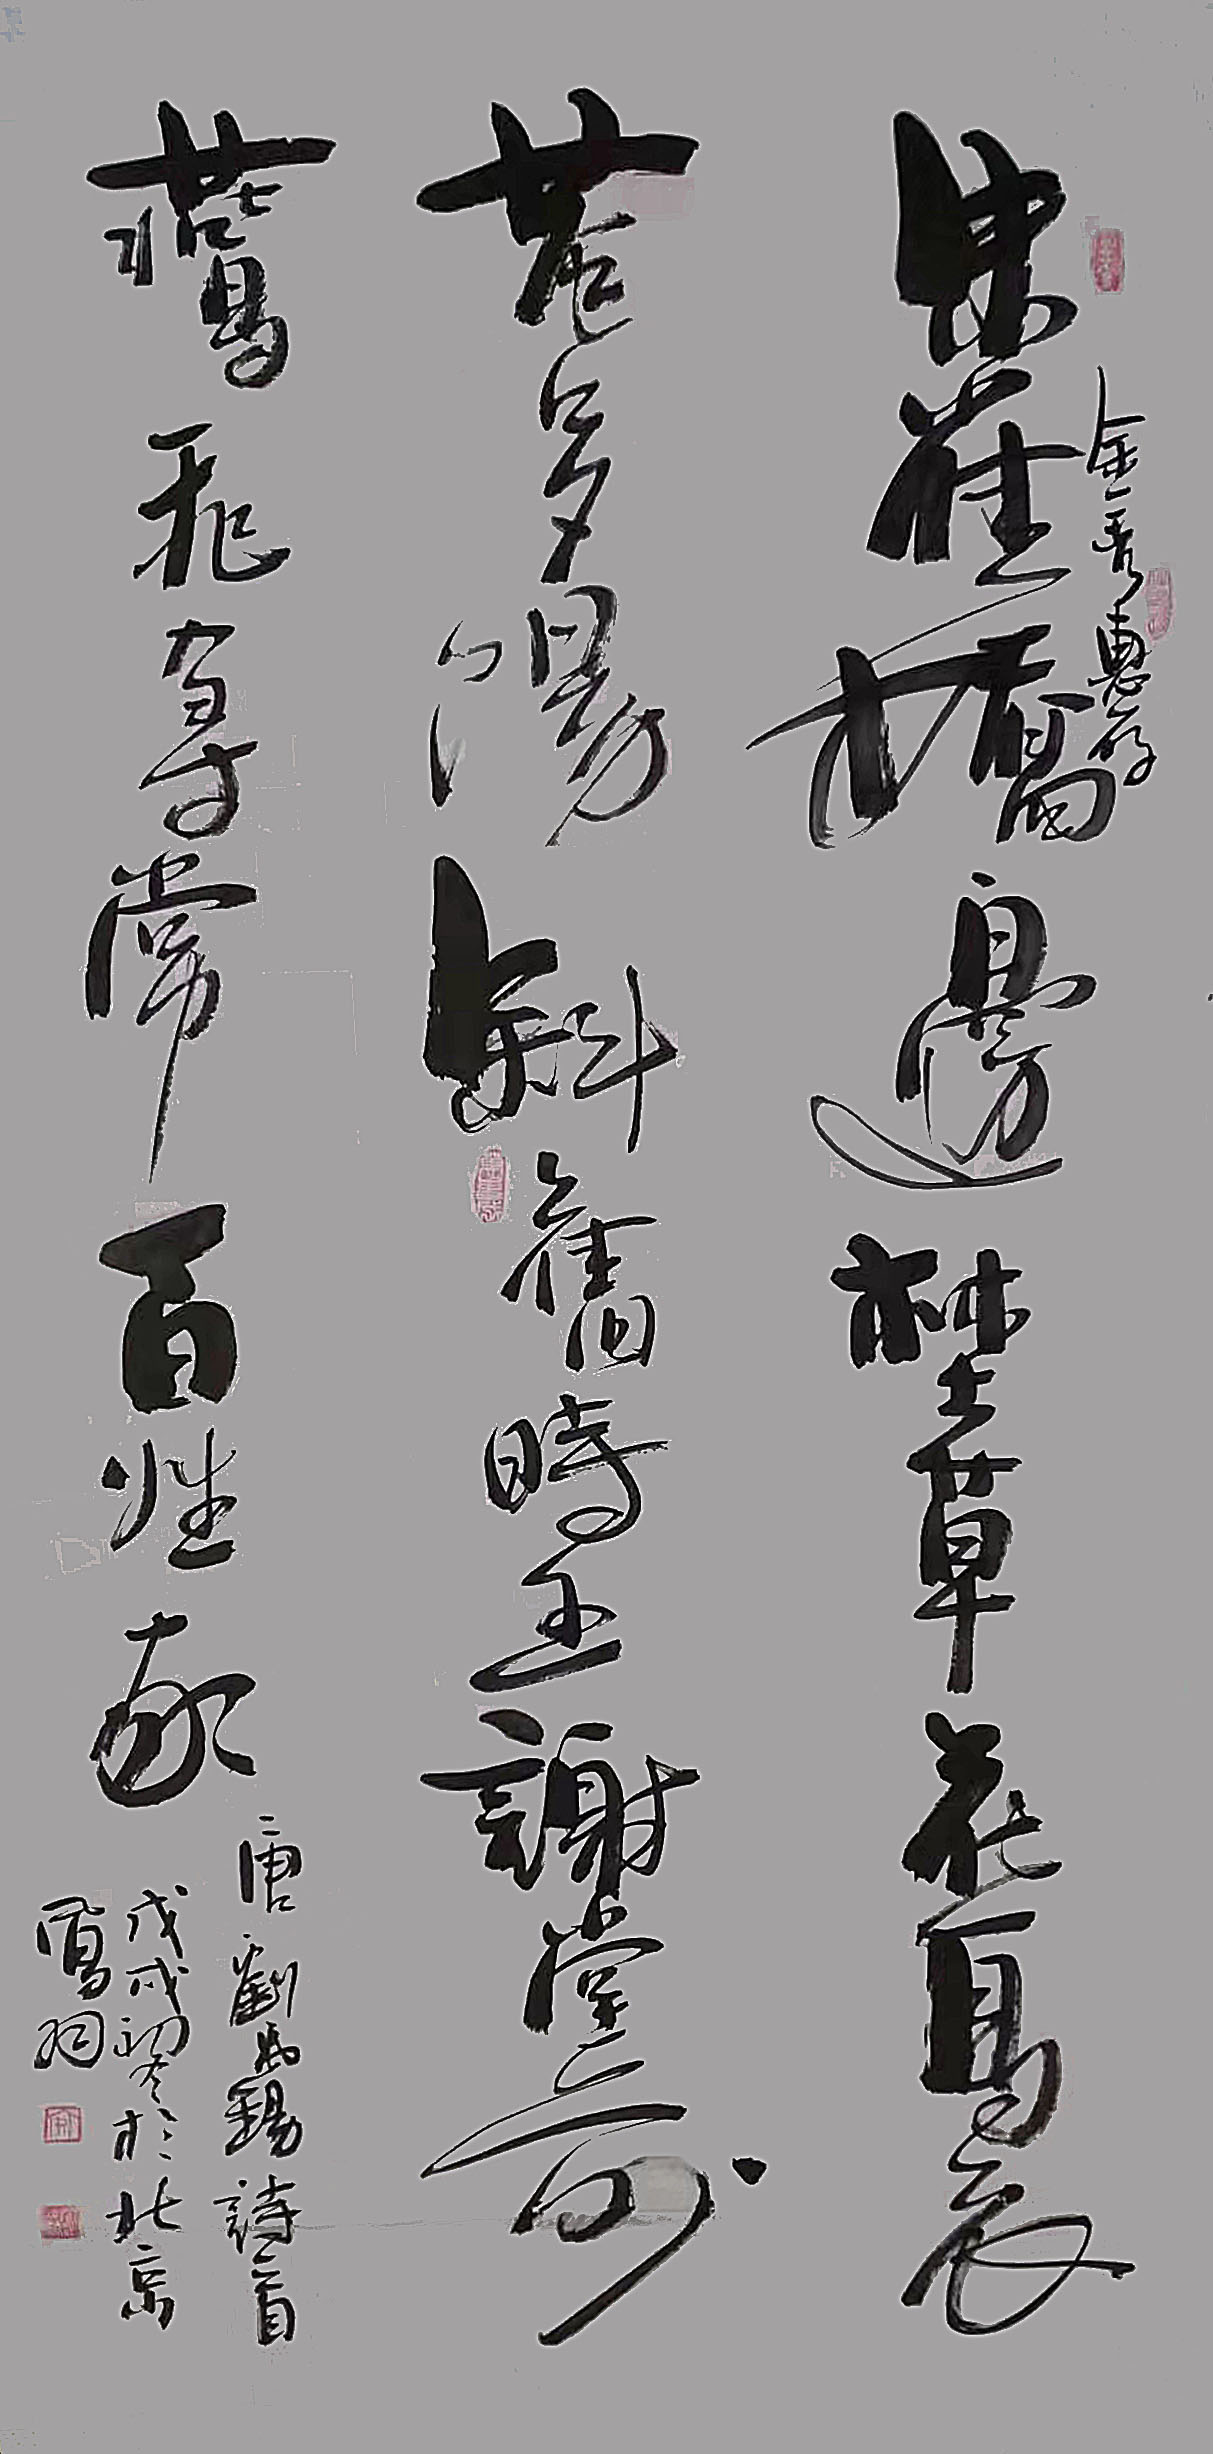 金惠存
朱雀橋邊埜草花烏衣
巷口夕陽斜舊時王謝堂前
鷰飛入尋常百姓家
唐劉禹錫詩一首
戊戌初冬於北京
鳳